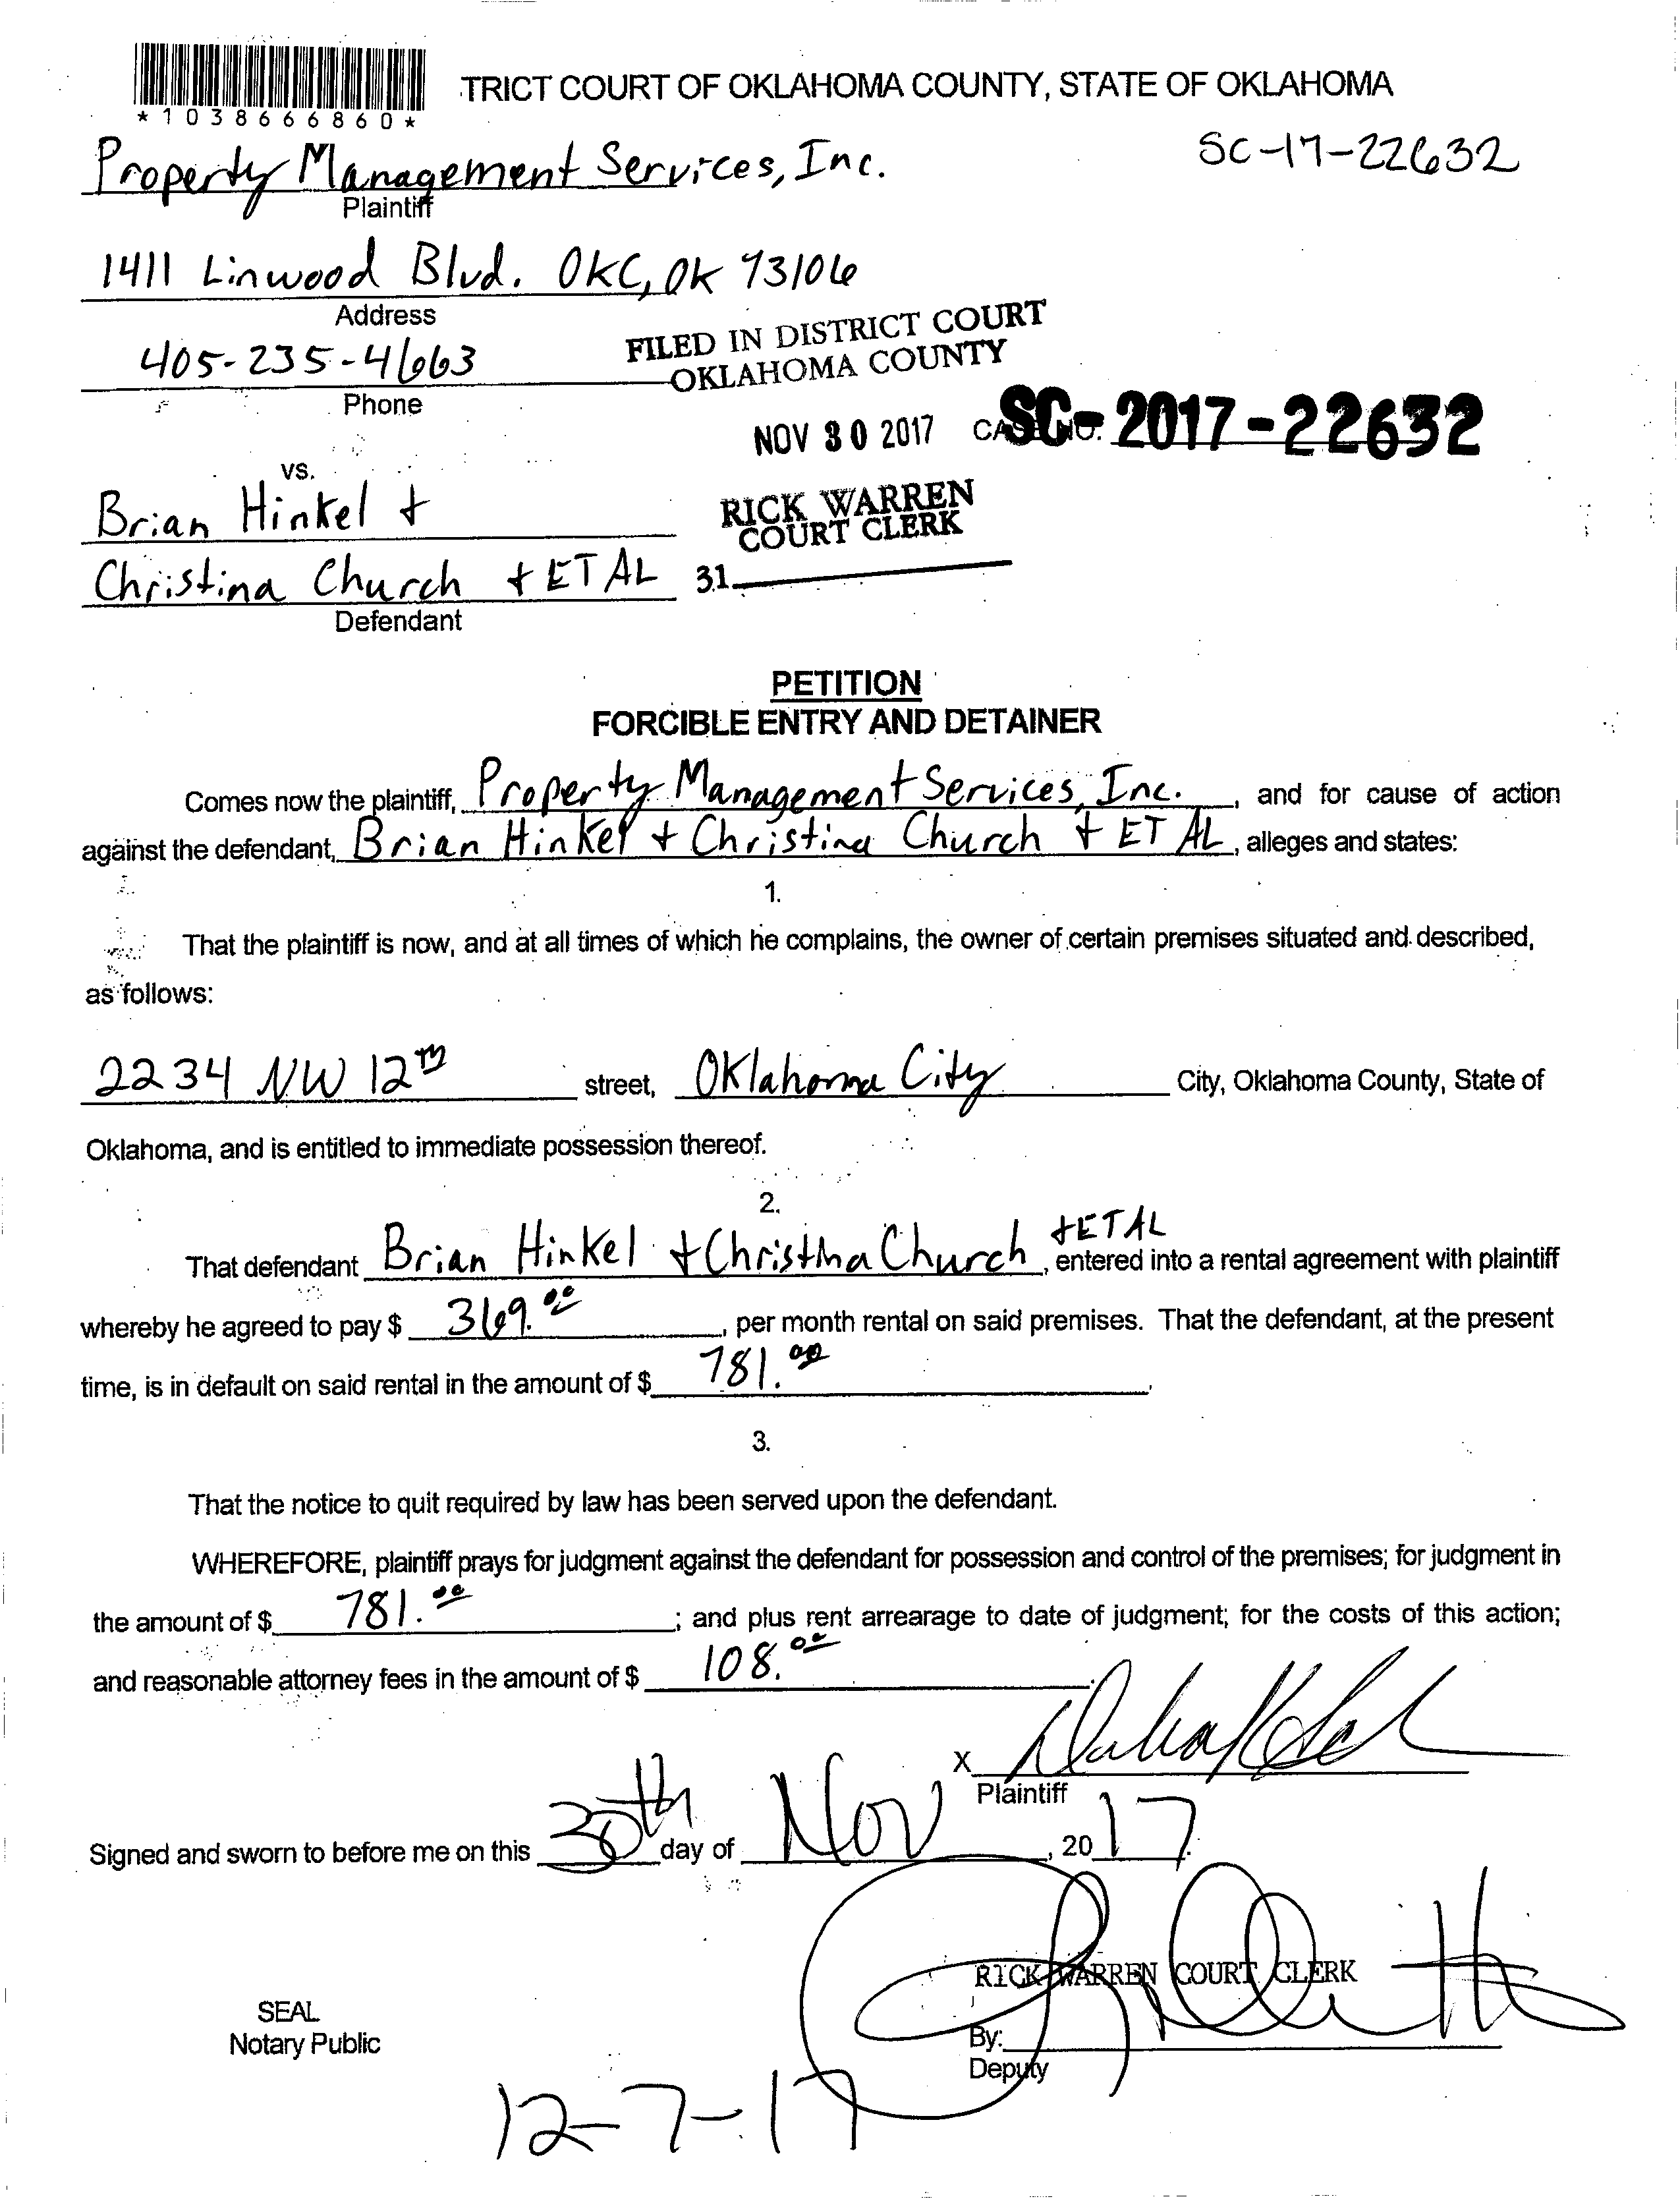 TRICT COURT OF OKLAHOMA COUNTY, STATE OF OKLAHOMA
*1038666860*
Property Management Services, Inc.
SC-17-22632
Plaintiff
1411 Linwood Blvd. OKC, OK 73106
Address
405-235-4663
FILED IN DISTRICT COURT
OKLAHOMA COUNTY
Phone
NOV 30 2017 CASE NO. SC-2017-22632
vs.
Brian Hinkel +
RICK WARREN
COURT CLERK
Christina Church + ET AL
31
Defendant
PETITION
FORCIBLE ENTRY AND DETAINER
Comes now the plaintiff, Property Management Services, Inc., and for cause of action
against the defendant, Brian Hinkel + Christina Church + ET AL, alleges and states:
1.
That the plaintiff is now, and at all times of which he complains, the owner of certain premises situated and described,
as follows:
2234 NW 12th street, Oklahoma City City, Oklahoma County, State of
Oklahoma, and is entitled to immediate possession thereof.
2.
That defendant Brian Hinkel + Christina Church + ET AL, entered into a rental agreement with plaintiff
whereby he agreed to pay $ 369.00, per month rental on said premises. That the defendant, at the present
time, is in default on said rental in the amount of $ 781.00.
3.
That the notice to quit required by law has been served upon the defendant.
WHEREFORE, plaintiff prays for judgment against the defendant for possession and control of the premises; for judgment in
the amount of $ 781.00; and plus rent arrearage to date of judgment; for the costs of this action;
and reasonable attorney fees in the amount of $ 108.00.
X
Plaintiff
Signed and sworn to before me on this 30th day of Nov, 2017.
RICK WARREN COURT CLERK
SEAL
Notary Public
By:
Deputy
12-7-17